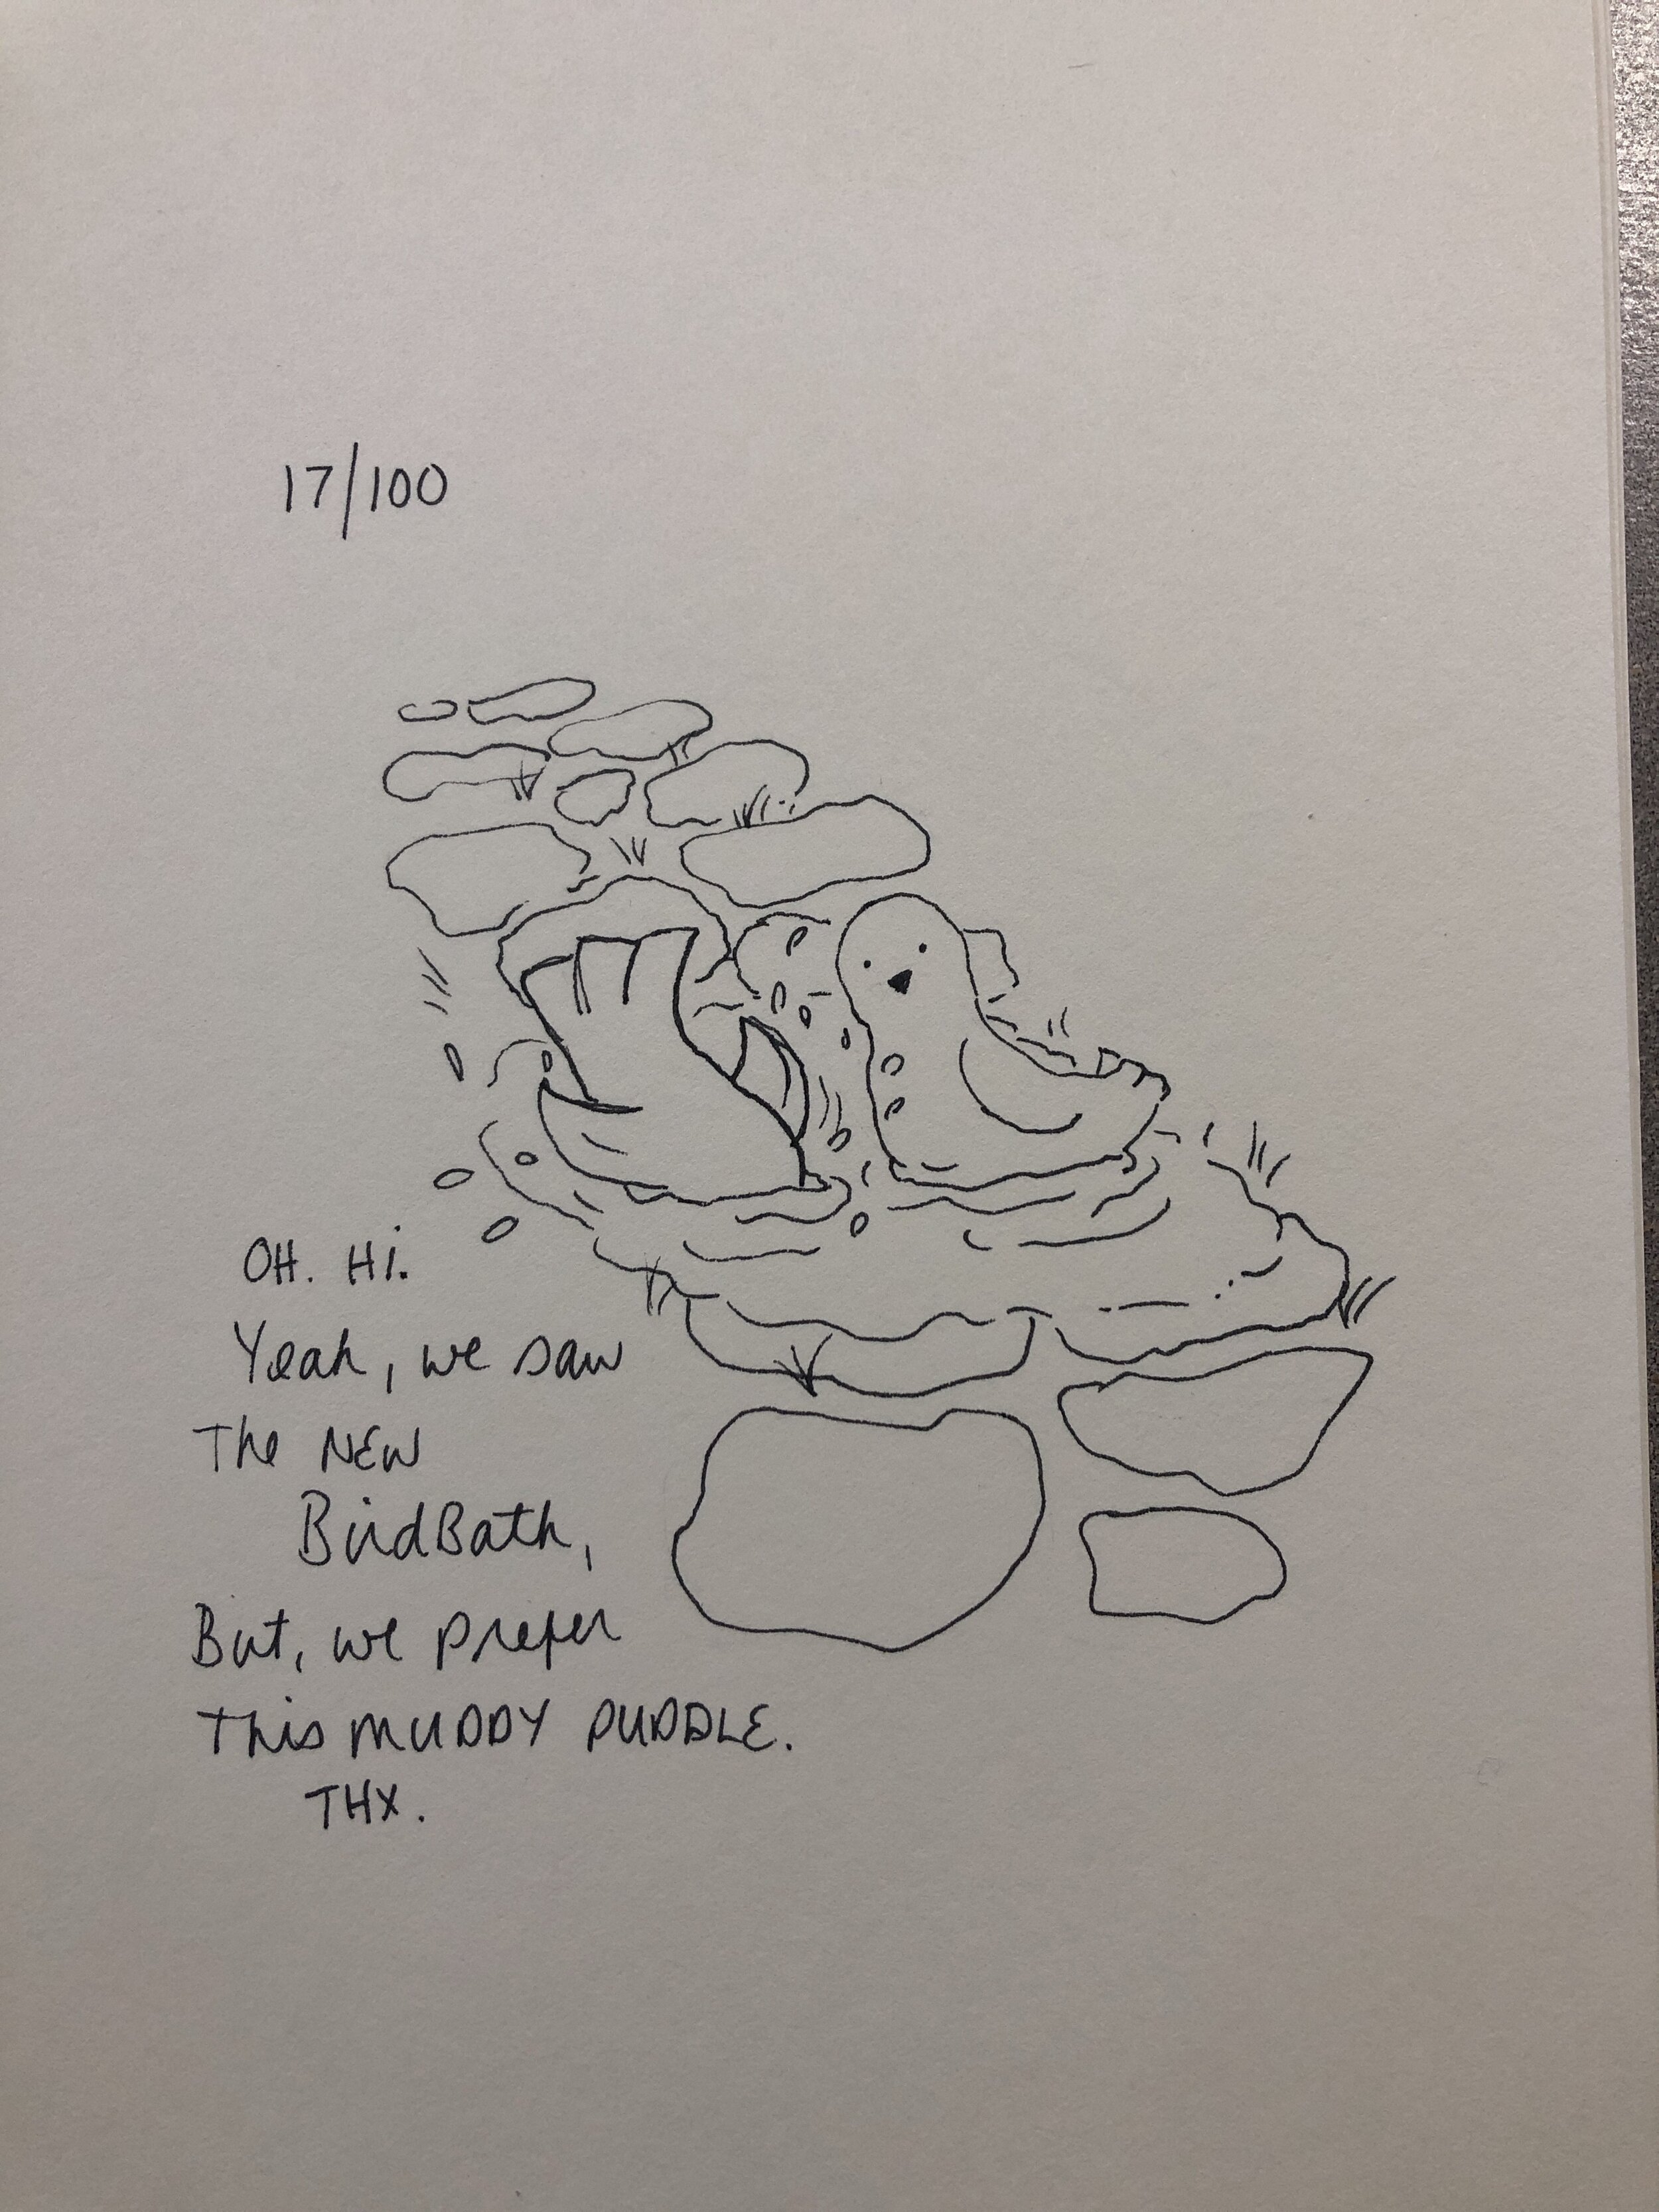 17/100
OH. Hi.
Yeah, we saw
The NEW
BirdBath,
But, we prefer
This MUDDY PUDDLE.
THX.